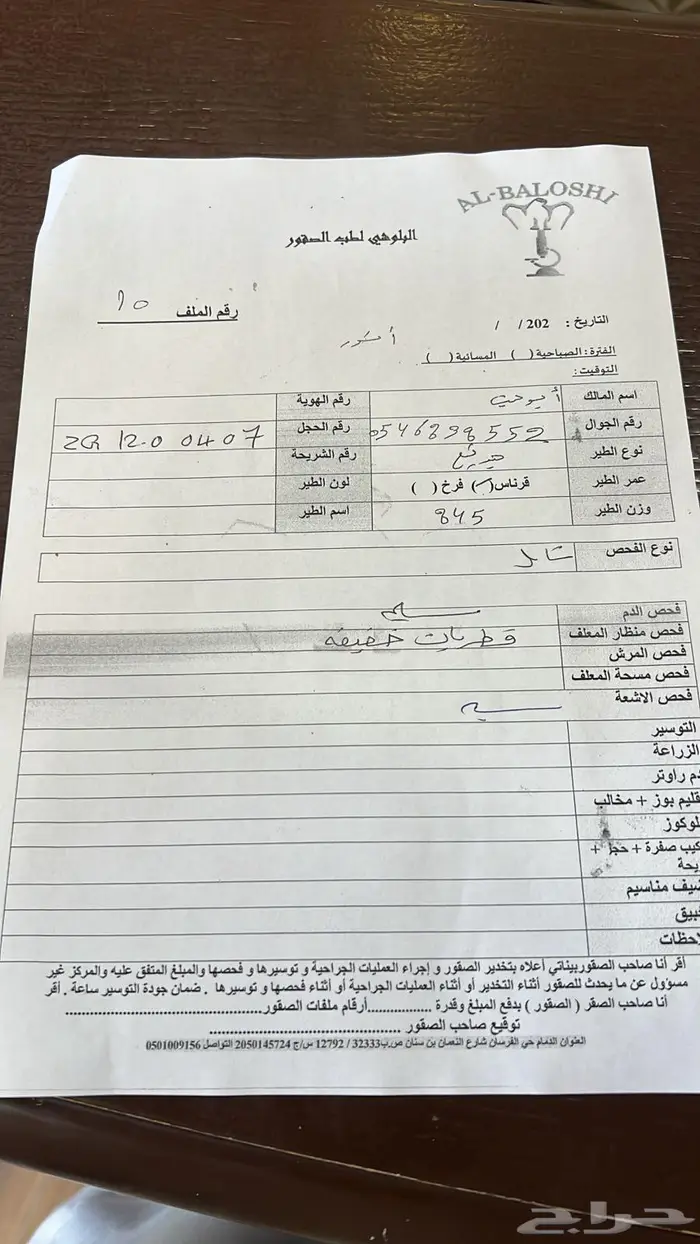 AL-BALOSHI
البلوشي لطب الصقور
رقم الملف 10
التاريخ : 202 / /
الفترة : الصباحية ( ) المسائية ( )
التوقيت :
اسم المالك رقم الهوية
رقم الجوال 0546898552 رقم الحجل ZG 12.0 0407
نوع الطير رقم الشريحة
عمر الطير قرناس( ) فرخ ( ) لون الطير
وزن الطير 845 اسم الطير
نوع الفحص شامل
فحص الدم سليم
فحص منظار المعلف فطريات خفيفه
فحص المرش
فحص مسحة المعلف
فحص الاشعة
التوسير
الزراعة
دم راوتر
قليم بوز + مخالب
لوكوز
كيب صفرة + حجل +
يحة
ضيف مناسيم
بيق
لاحظات
أقر أنا صاحب الصقوربيناتي أعلاه بتخدير الصقور و إجراء العمليات الجراحية و توسيرها و فحصها والمبلغ المتفق عليه والمركز غير
مسؤول عن ما يحدث للصقور أثناء التخدير أو أثناء العمليات الجراحية أو أثناء فحصها و توسيرها . ضمان جودة التوسير ساعة . أقر
أنا صاحب الصقر ( الصقور ) بدفع المبلغ وقدرة .................أرقام ملفات الصقور..............................
توقيع صاحب الصقور ..............................
العنوان الدمام حي الفرسان شارع النعمان بن سنان ص.ب32333 / 12792 س/ج 2050145724 التواصل 0501009156
حراج